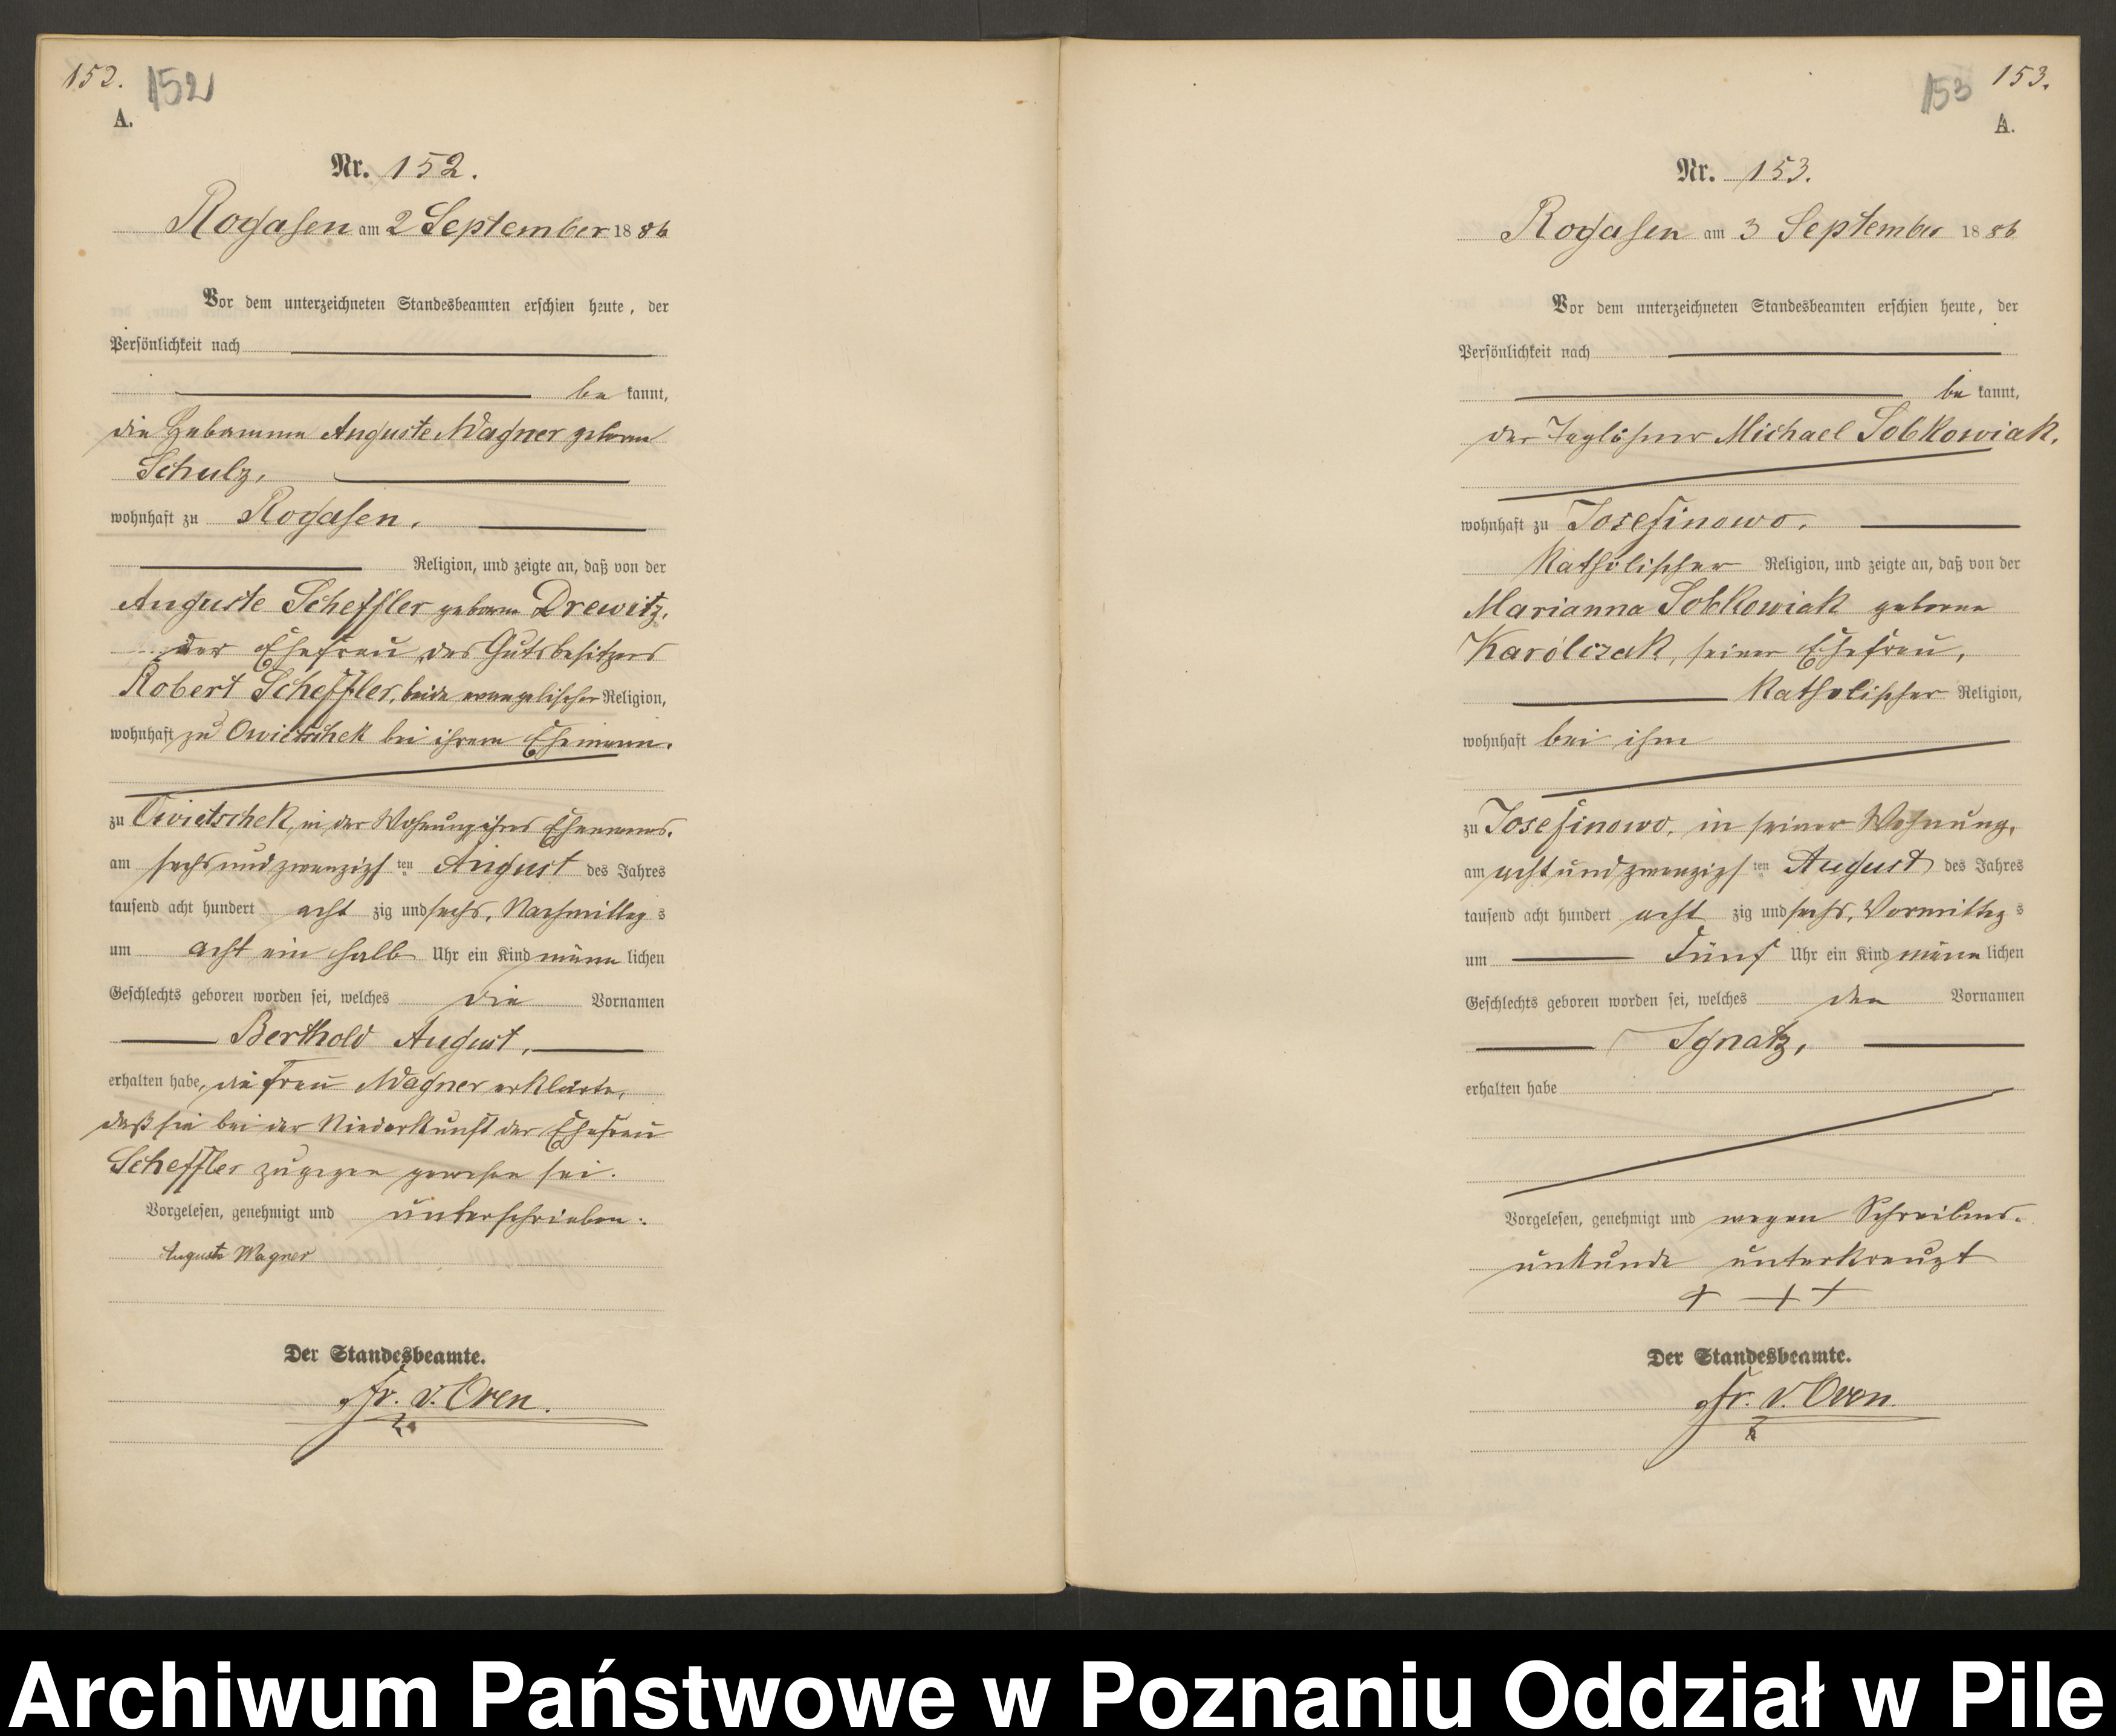 152.
152
A.
Nr. 152.
Rogasen am 2 September 1886
Vor dem unterzeichneten Standesbeamten erschien heute, der
Persönlichkeit nach
be kannt,
die Hebamme Auguste Wagner geborne
Schulz,
wohnhaft zu Rogasen.
Religion, und zeigte an, daß von der
Auguste Scheffler geborne Drewitz,
der Ehefrau des Gutsbesitzers
Robert Scheffler, beide evangelischer Religion,
wohnhaft zu Owietschek bei ihrem Ehemann.
zu Owietschek, in der Wohnung ihres Ehemanns.
am sechsundzwanzigsten August des Jahres
tausend acht hundert acht zig und sechs, Nachmittag s
um acht ein halb Uhr ein Kind männ lichen
Geschlechts geboren worden sei, welches die Vornamen
Berthold August,
erhalten habe, die Frau Wagner erklärte,
daß sie bei der Niederkunft der Ehefrau
Scheffler zugegen gewesen sei.
Vorgelesen, genehmigt und unterschrieben:
Auguste Wagner
Der Standesbeamte.
Fr. v. Oven.
153
153.
A.
Nr. 153.
Rogasen am 3 September 1886
Vor dem unterzeichneten Standesbeamten erschien heute, der
Persönlichkeit nach
be kannt,
der Taglöhner Michael Sobkowiak.
wohnhaft zu Josefinowo.
Katholischer Religion, und zeigte an, daß von der
Marianna Sobkowiak geborne
Karólczak, seiner Ehefrau,
Katholischer Religion,
wohnhaft bei ihm
zu Josefinowo, in seiner Wohnung,
am achtundzwanzigsten August des Jahres
tausend acht hundert acht zig und sechs, Vormittag s
um Fünf Uhr ein Kind männ lichen
Geschlechts geboren worden sei, welches den Vornamen
Ignatz,
erhalten habe
Vorgelesen, genehmigt und wegen Schreibens-
unkunde unterkreuzt
+ + +
Der Standesbeamte.
Fr. v. Oven.
Archiwum Państwowe w Poznaniu Oddział w Pile